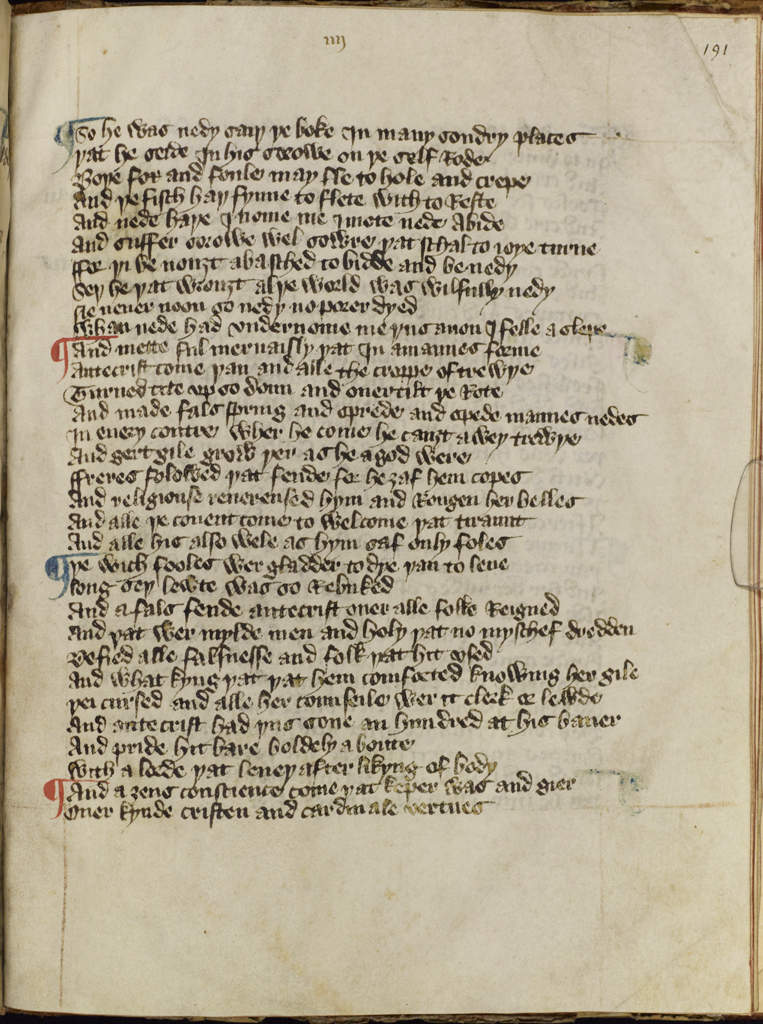 iiij
191
¶ So he was nedy saiþ þe boke In many sondry places
þat he seide In his sorowe on þe self Rode
Boþe fox and foule may fle to hole and crepe
And þe fisch haþ fynne to flete with to Reste
And nede haþe I nome me I mote nede Abide
And suffer sorowe wel sowre þat schal to ioye turne
ffor þi be nouȝt abasched to bidde and be nedy
Seþ he þat wrouȝt al þe world was wilfully nedy
Ne neuer noon so nedy no porer dyed
Whan nede had vndernome me þus anon I felle a slepe
¶ And mette ful meruaisly þat In a mannes forme
Antecrist come þan and alle the croppe of trewþe
Turned tite vp so doun and ouertilt þe Rote
And made fals spring and sprede and spede mannes nedes
In euery contre wher he come he cautt awey trewþe
And gert gile grow þer as he a god were
ffreres folowed þat fende for he ȝaf hem copes
And religiouse reuerensed hym and Rongen her belles
And alle þe couent come to welcome þat tiraunt
And alle his also wele as hym saf only foles
¶ þe wich fooles wer gladder to dye þan to leue
long seþ lewte was so Rebuked
And a fals fende antecrist ouer alle folke Reigned
And þat wer mylde men and holy þat no myschef dredden
Defied alle falsnesse and folk þat hit vsed
And what kyng þat þat hem comforted knowing her gile
þei cursed and alle her counseile wer it clerk or lewde
And antecrist had þus sone an hundred at his baner
And pride hit bare boldely aboute
With a lorde þat leueþ after likyng of body
¶ And a ȝens conscience come þat keper was and gier
Ouer kynde cristen and cardinale vertues